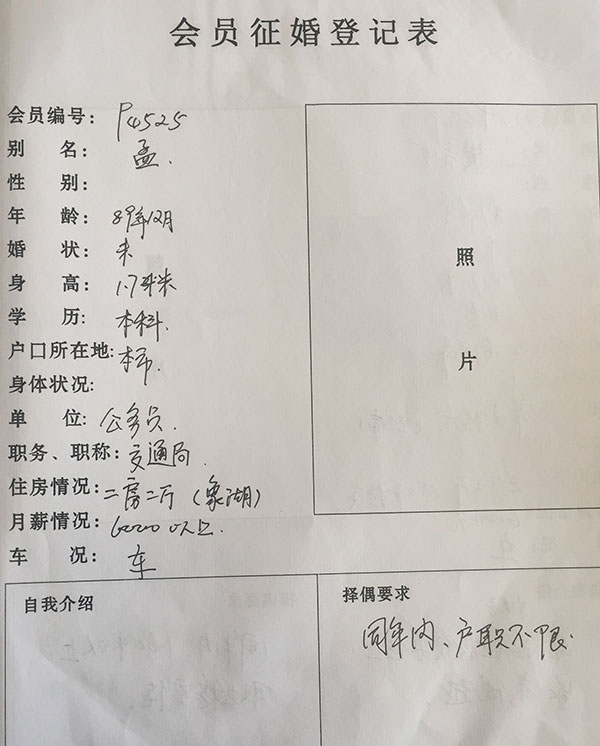 会员征婚登记表
会员编号: P4525
别 名: 孟.
性 别:
年 龄: 89年12月
婚 状: 未
身 高: 1.7米
学 历: 本科.
户口所在地: 本市.
身体状况:
单 位: 公务员.
职务、职称: 交通局.
住房情况: 二房二厅(象湖)
月薪情况: 6000以上
车 况: 车
照
片
自我介绍
择偶要求
同年内、户职不限.